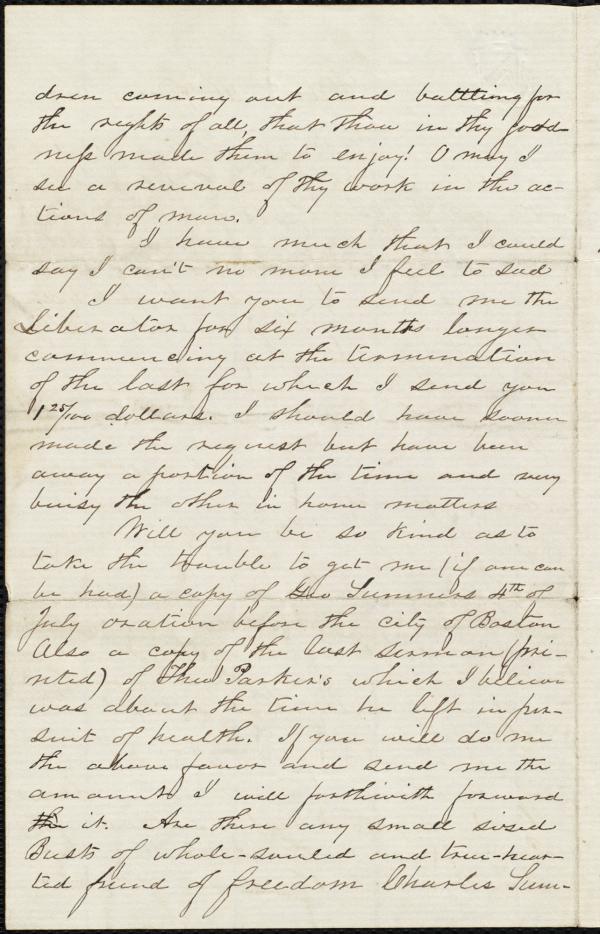 dren coming out and battling for
the rights of all, that thou in thy good-
ness made them to enjoy! O may I
see a revival of thy work in the ac-
tions of man.
I have much that I could
say I can't no more I feel to sad
I want you to send me the
Liberator for six months longer
commencing at the termination
of the last for which I send you
1 25/100 dollars. I should have sooner
made the request but have been
away a portion of the time and very
buisy the other in home matters
Will you be so kind as to
take the trouble to get me (if one can
be had) a copy of Geo Sumners 4th of
July oration before the city of Boston
Also a copy of the last sermon (pri-
nted) of Theo Parker's which I believe
was about the time he left in pur-
suit of health. If you will do me
the above favor and send me the
amounts I will forthwith forward
the it. Are there any small sized
Busts of whole-souled and true-hear-
ted friend of freedom Charles Sum-